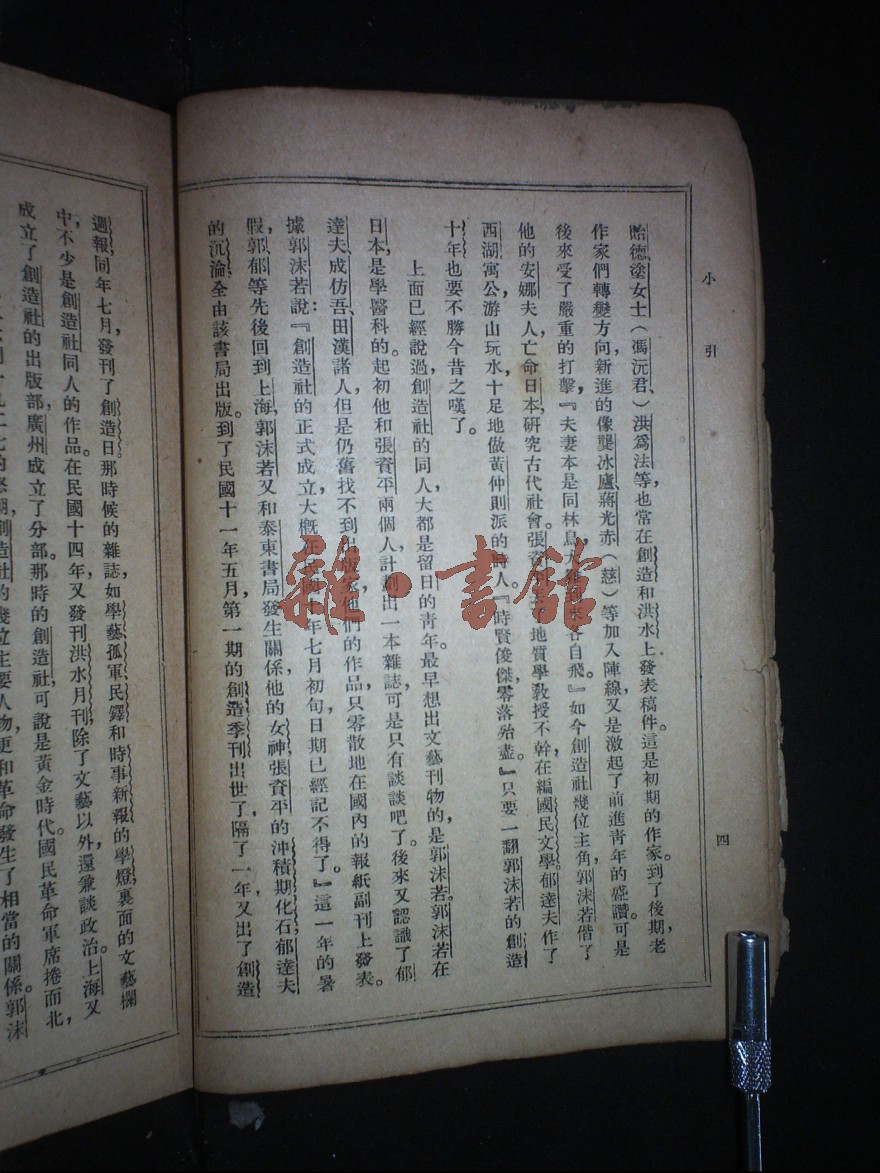 小引
四
貽德塗女士（馮沅君）洪爲法等也常在創造和洪水上發表稿件。這是初期的作家。到了後期老
作家們轉變方向，新進的像龔冰廬，蔣光赤（慈）等加入陣線，又是激起了前進靑年的盛讚。可是
後來受了嚴重的打擊，『夫妻本是同林鳥，大各自飛。』如今創造社幾位主角，郭沫若偕了
他的安娜夫人，亡命日本，研究古代社會。張資平地質學敎授不幹，在編國民文學，郁達夫作了
西湖寓公，游山玩水，十足地做黃仲則派的詩人。『時賢俊傑，零落殆盡。』只要一翻郭沫若的創造
十年，也要不勝今昔之嘆了。
上面已經說過，創造社的同人大都是留日的靑年。最早想出文藝刊物的，是郭沫若。郭沫若在
日本，是學醫科的。起初他和張資平兩個人，計劃出一本雜誌，可是只有談談吧了。後來又認識了郁
達夫，成仿吾，田漢諸人，但是仍舊找不到出版家，他們的作品，只零散地在國內的報紙副刊上發表。
據郭沫若說：『創造社的正式成立，大概在民國十年七月初旬，日期已經記不得了。』這一年的暑
假，郭，郁等先後回到上海，郭沫若又和泰東書局發生關係，他的女神，張資平的沖積期化石，郁達夫
的沉淪，全由該書局出版。到了民國十一年五月，第一期的創造季刊出世了，隔了一年，又出了創造
週報，同年七月，發刊了創造日。那時候的雜誌，如學藝，孤軍，民鐸和時事新報的學燈，裏面的文藝欄
中，不少是創造社同人的作品。在民國十四年，又發刊洪水月刊，除了文藝以外，還兼談政治。上海又
成立了創造社的出版部，廣州成立了分部。那時的創造社，可說是黃金時代。國民革命軍席捲而北，
創造社的幾位主要人物，更和革命發生了相當的關係。郭沫
雜·書館